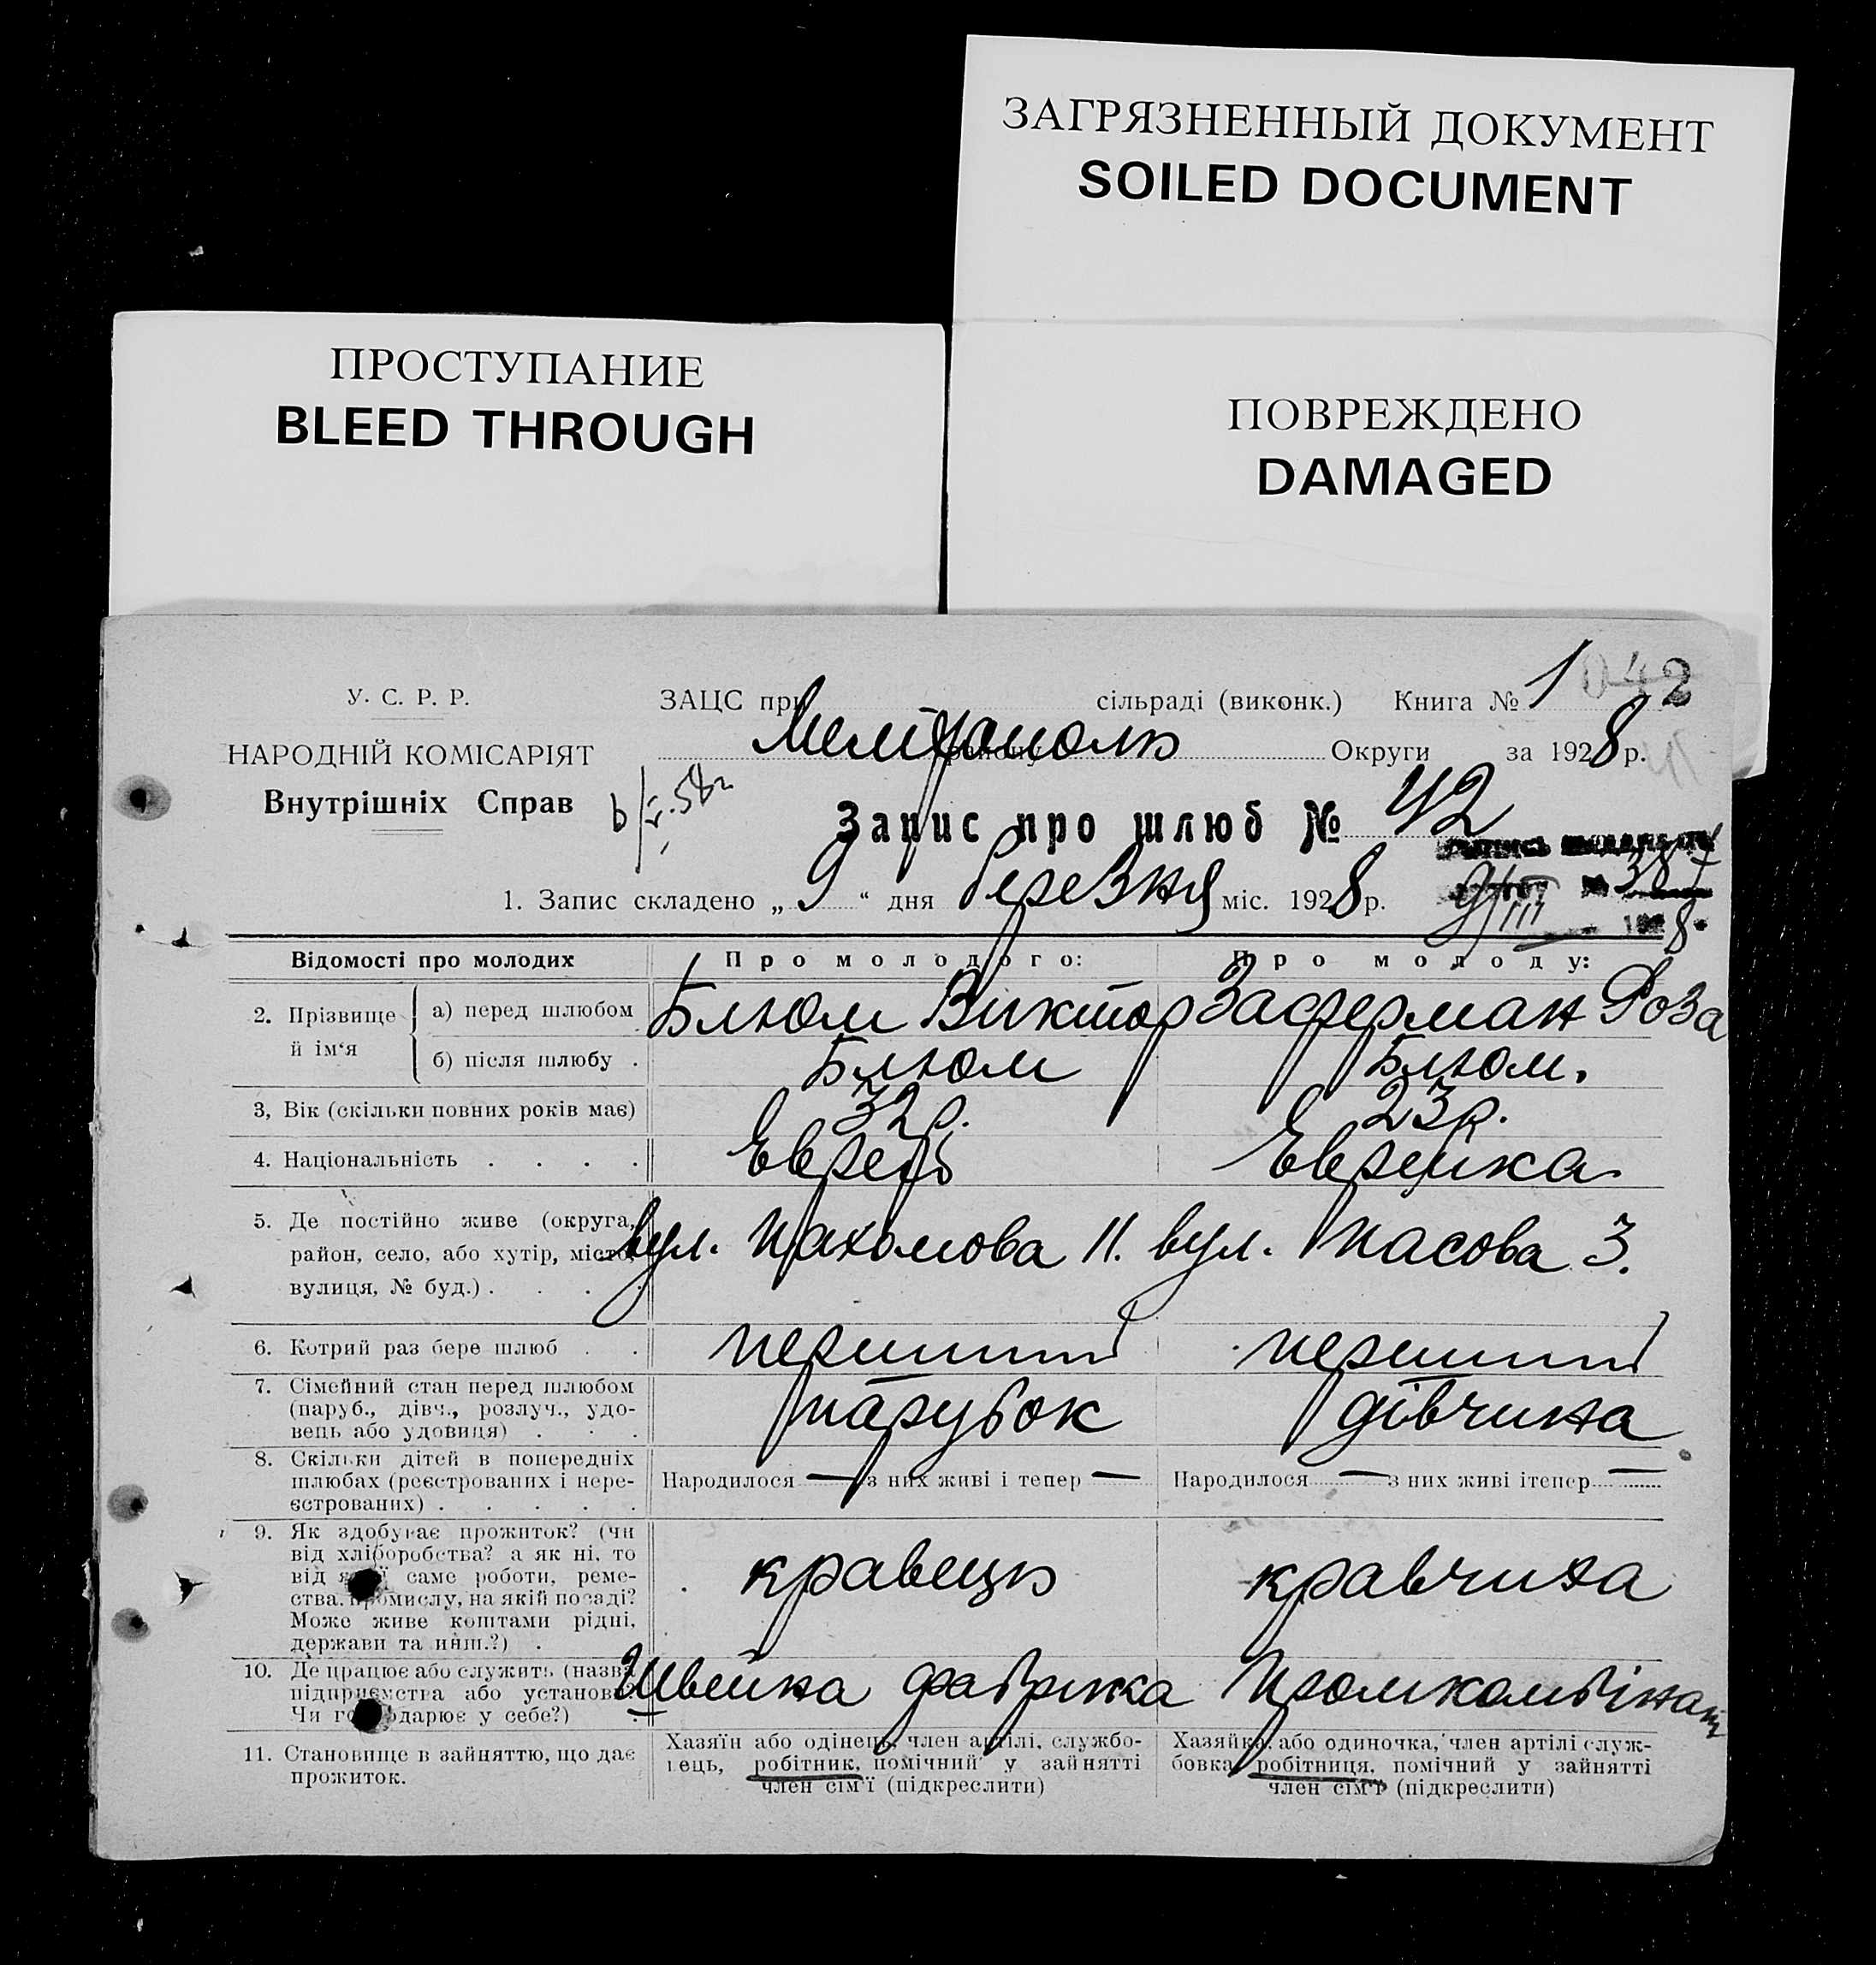 ЗАГРЯЗНЕННЫЙ ДОКУМЕНТ
SOILED DOCUMENT
ПРОСТУПАНИЕ
BLEED THROUGH
ПОВРЕЖДЕНО
DAMAGED
042
У. С. Р. Р.
НАРОДНІЙ КОМІСАРІЯТ
Внутрішніх Справ
ЗАЦС при сільраді (виконк.) Книга № 1
Мелітополь району Округи за 1928 р.
Запис про шлюб № 42
1. Запис складено „ 9 “ дня березня міс. 1928 р.
387
9/III
8
Відомості про молодих Про молодого: Про молоду:
2. Прізвище й ім‘я а) перед шлюбом Блюм Виктор Засферман Роза
б) після шлюбу . Блюм Блюм.
3, Вік (скільки повних років має) 32 р. 23 р.
4. Національність . . . . Еврей Еврейка
5. Де постійно живе (округа,
район, село, або хутір, місто, вул. Пахомова 11. вул. Тасова 3.
вулиця, № буд.) . . . .
6. Котрий раз бере шлюб . . перший перший
7. Сімейний стан перед шлюбом
(паруб., дівч., розлуч., удо- парубок дівчина
вець або удовиця) . . .
8. Скільки дітей в попередніх
шлюбах (реєстрованих і нере- Народилося — з них живі і тепер — Народилося — з них живі ітепер —
єстрованих) . . . . .
9. Як здобуває прожиток? (чи
від хліборобства? а як ні, то
від якої саме роботи, реме- кравець кравчиха
ства, промислу, на якій посаді?
Може живе коштами рідні,
держави та инш.?) .
10. Де працює або служить (назва
підприємства або установи? Швейна фабрика Промкомбінат
Чи господарює у себе?) .
11. Становище в зайняттю, що дає
прожиток.
Хазяїн або одінець, член артілі, службо-
вець, робітник, помічний у зайнятті
член сім'ї (підкреслити)
Хазяйка, або одиночка, член артілі служ-
бовка робітниця, помічний у зайнятті
член сім'ї (підкреслити)